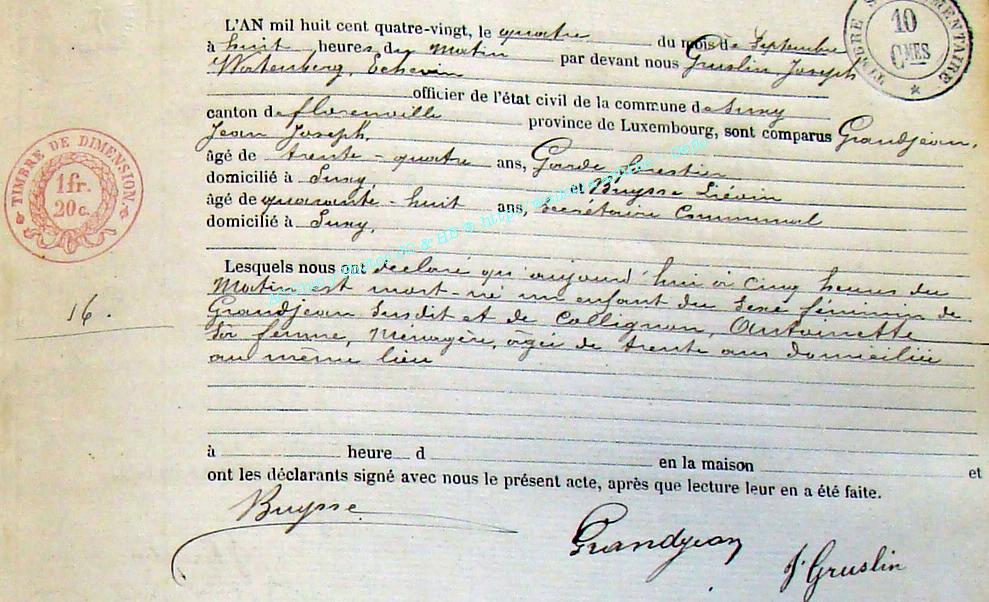 L'AN mil huit cent quatre-vingt, le quatre du mois de Septembre
à huit heures du Matin par devant nous Gruslin Joseph
Watenberg, Echevin
officier de l'état civil de la commune de Suny
canton de florenville province de Luxembourg, sont comparus Grandjean,
Jean Joseph,
âgé de trente-quatre ans, Garde forestier
domicilié à Suny et Buysse Liévin
âgé de quarante-huit ans, Secrétaire Communal
domicilié à Suny,
Lesquels nous ont déclaré qu'aujourd'hui à Cinq heures du
Matin est mort-né un enfant du Sexe féminin de
Grandjean Susdit et de Collignon, Antoinette
Sa femme, Ménagère, âgée de trente ans domiciliée
au même lieu
à heure d en la maison et
ont les déclarants signé avec nous le présent acte, après que lecture leur en a été faite.
Buysse
Grandjean
J Gruslin
16.
TIMBRE DE DIMENSION.
1 fr.
20 c.
10
CMES